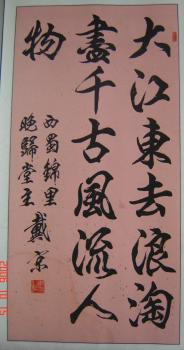 大江東去浪淘
盡千古風流人
物
西蜀錦里
晚歸堂主戴榮